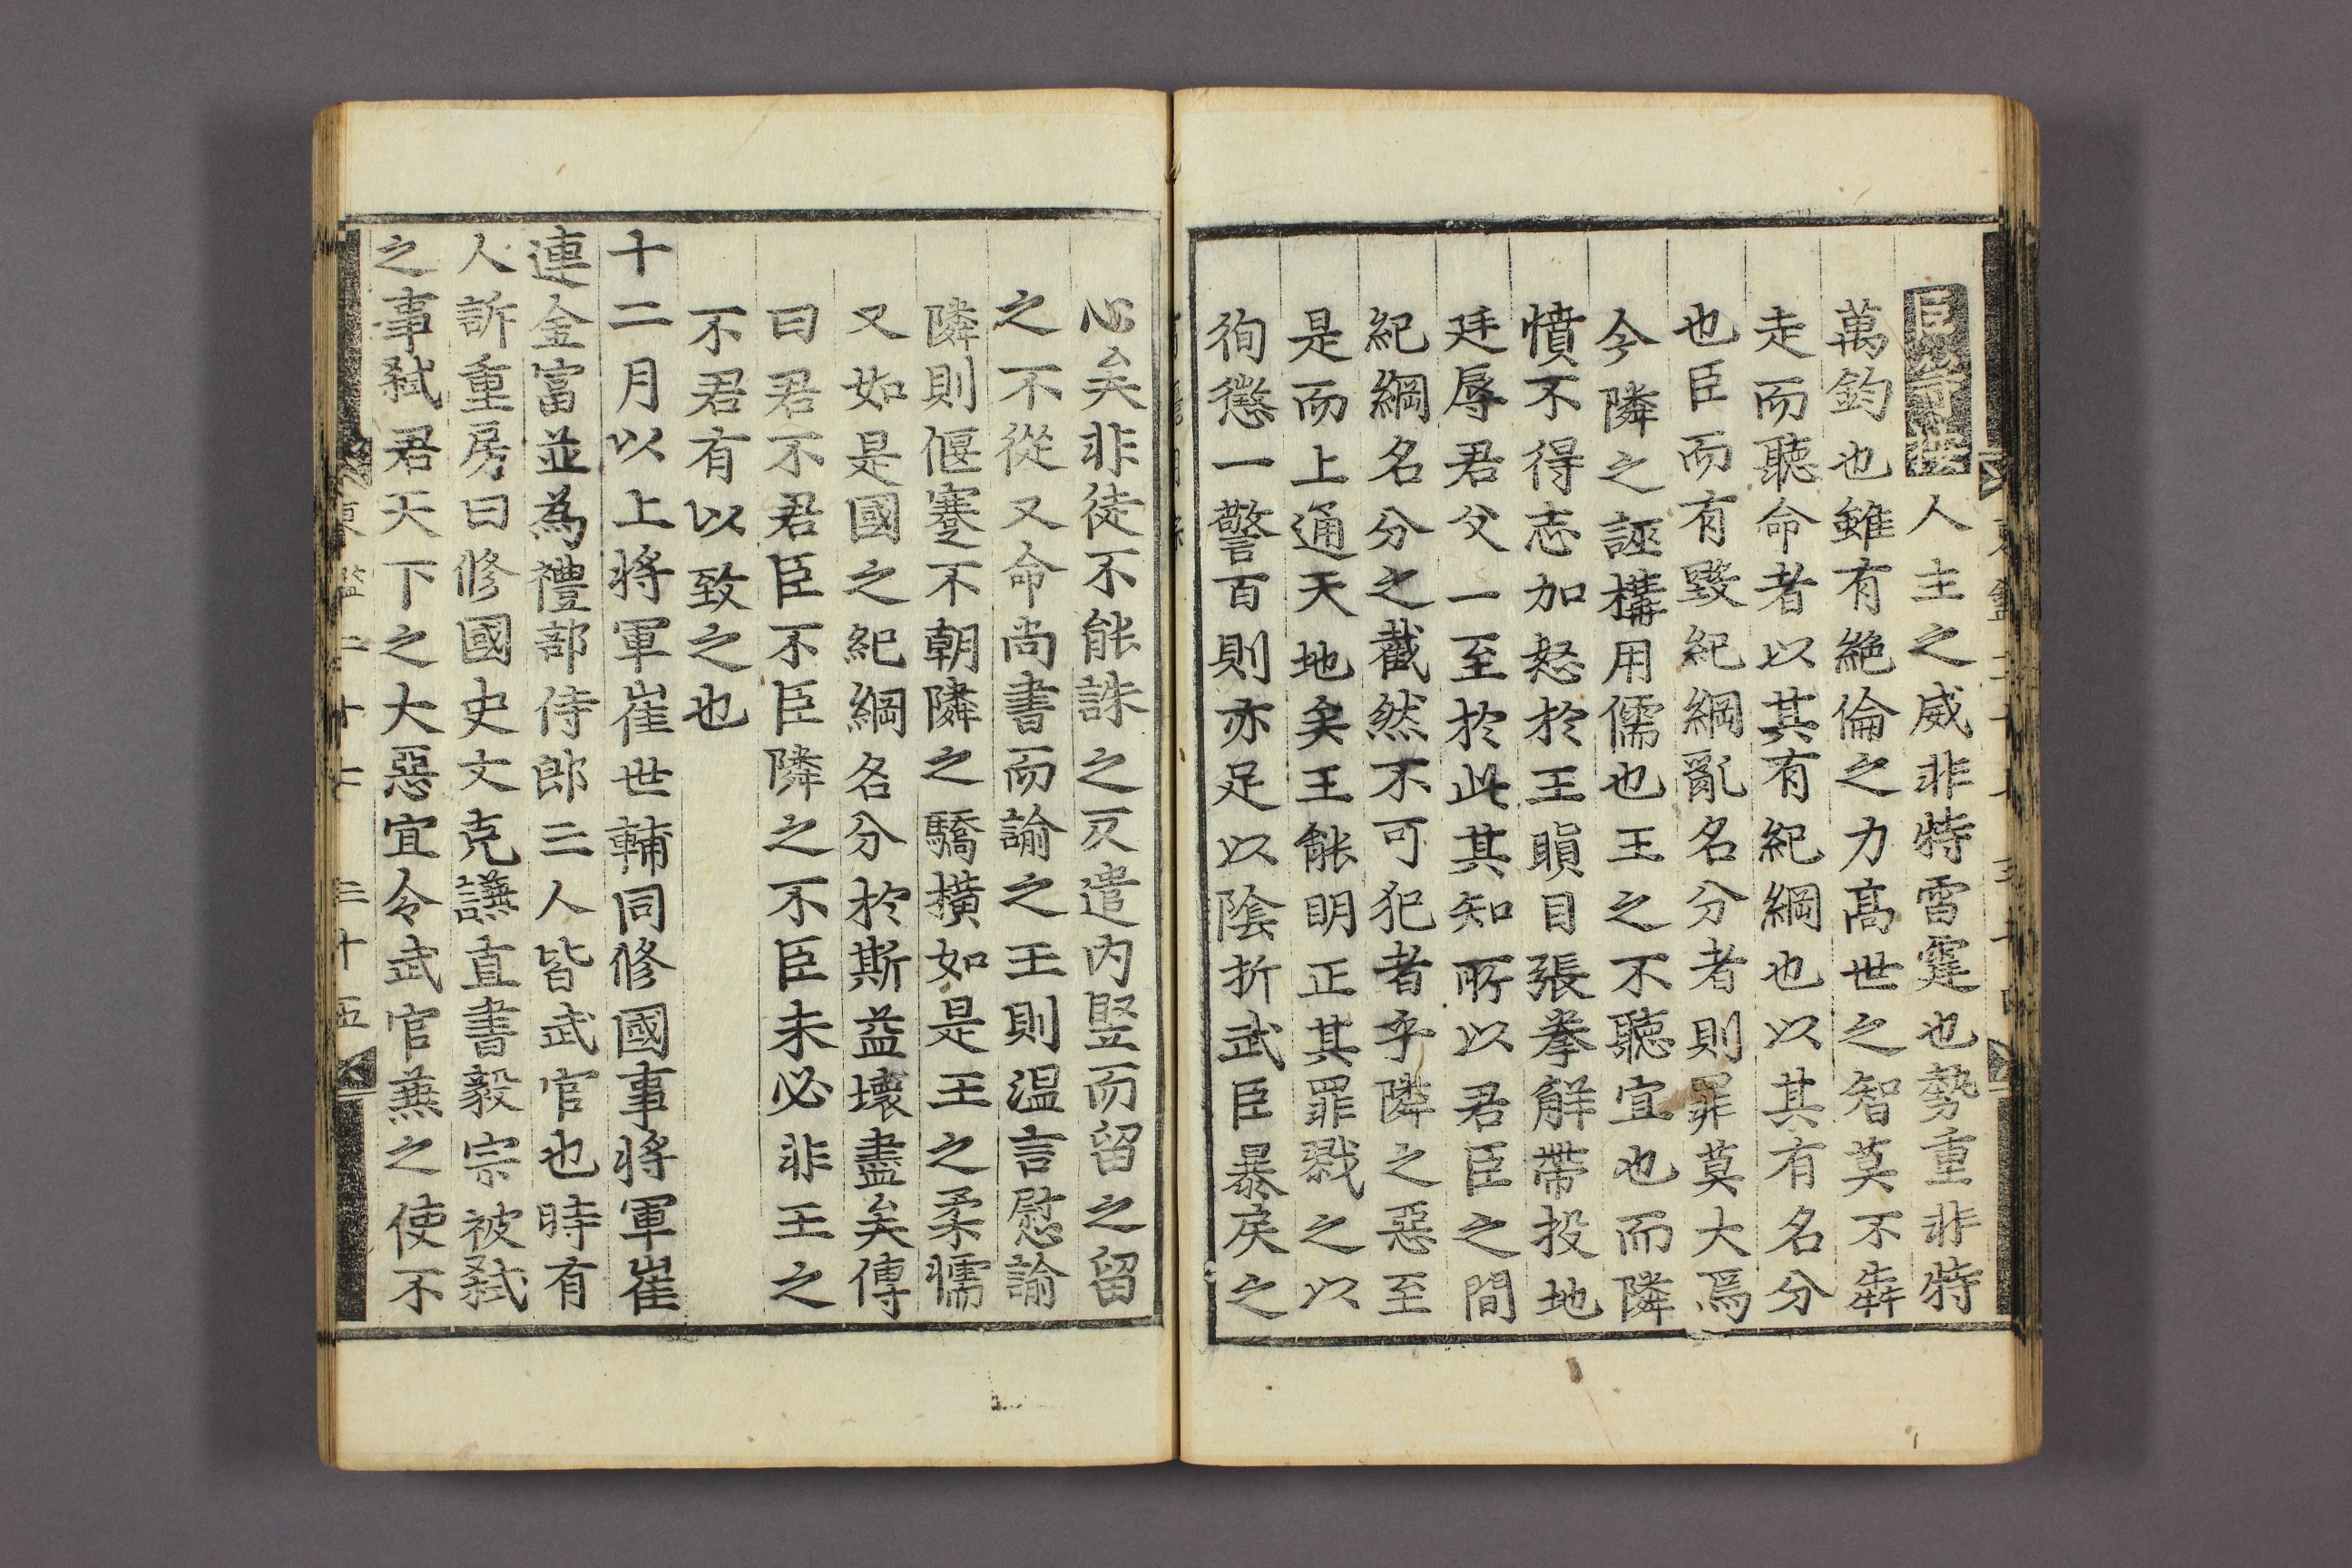 臣等按人主之威非特雷霆也勢重非特
萬鈞也雖有絶倫之力高世之智莫不犇
走而聽命者以其有紀綱也以其有名分
也臣而有毀紀綱亂名分者則罪莫大焉
今隣之誣構用儒也王之不聽宜也而隣
憤不得志加怒於王瞋目張拳觧帶投地
廷辱君父一至於此其知所以君臣之間
紀綱名分之截然不可犯者乎隣之惡至
是而上通天地矣王能明正其罪戮之以
徇懲一警百則亦足以陰折武臣暴戾之
心矣非徒不能誅之又遣内竪而留之留
之不從又命尚書而諭之王則温言慰諭
隣則偃蹇不朝隣之驕橫如是王之柔懦
又如是國之紀綱名分於斯益壞盡矣傳
曰君不君臣不臣隣之不臣未必非王之
不君有以致之也
十二月以上將軍崔世輔同修國事將軍崔
連金富並為禮部侍郎三人皆武官也時有
人訴重房曰修國史文克謙直書毅宗被弑
之事弑君天下之大惡宜令武官兼之使不
東鑑二十七 三十五